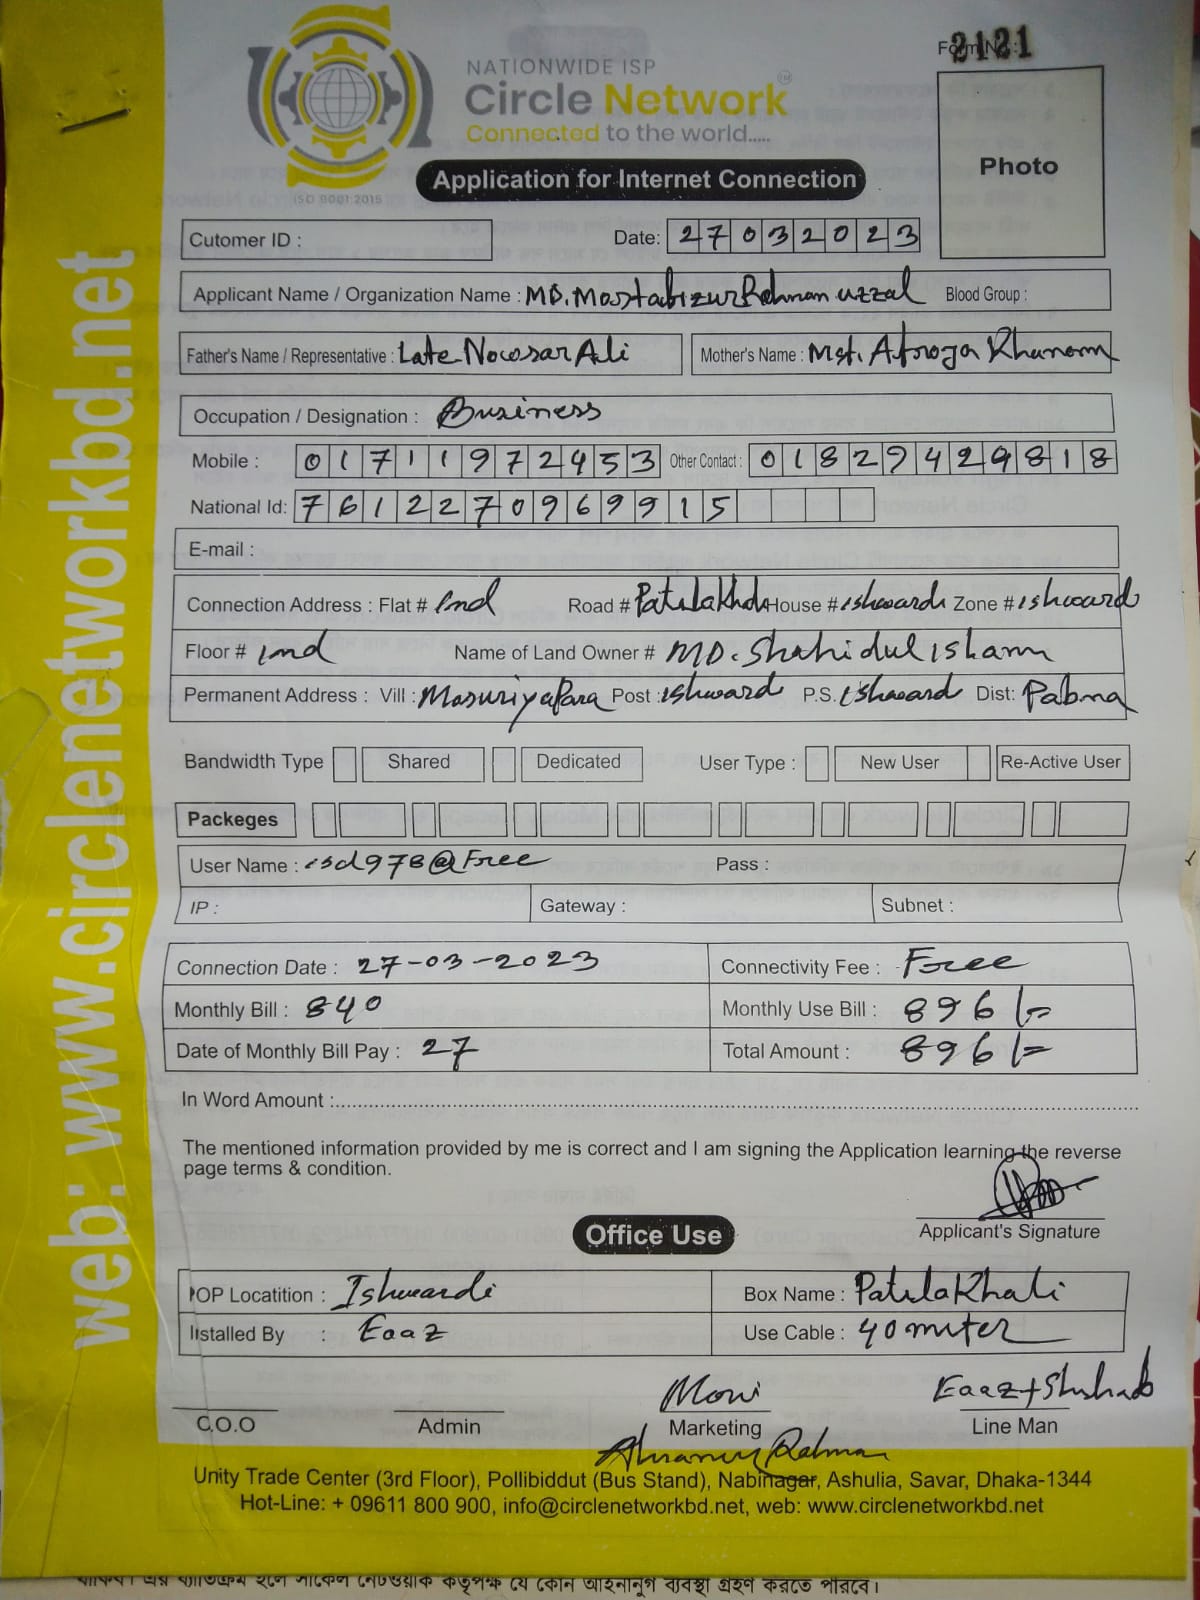 Form No : 2121
NATIONWIDE ISP
Circle Network TM
Connected to the world.....
ISO 9001:2015
Application for Internet Connection
Photo
web: www.circlenetworkbd.net
Cutomer ID :
Date: 27032023
Applicant Name / Organization Name : MD. Mostabizur Rahman uzzal Blood Group :
Father's Name / Representative : Late Nowsar Ali Mother's Name : Mst. Afroja Khanam
Occupation / Designation : Business
Mobile : 01711972453 Other Contact : 01829429818
National Id: 7612270969915
E-mail :
Connection Address : Flat # 2nd Road # Patilakhali House # ishwardi Zone # ishwardi
Floor # 2nd Name of Land Owner # MD. Shahidul islam
Permanent Address : Vill : Masuriyapara Post : ishwardi P.S. ishwardi Dist: Pabna
Bandwidth Type Shared Dedicated User Type : New User Re-Active User
Packeges
User Name : isd978@Free Pass :
IP : Gateway : Subnet :
Connection Date : 27-03-2023 Connectivity Fee : Free
Monthly Bill : 840 Monthly Use Bill : 896/=
Date of Monthly Bill Pay : 27 Total Amount : 896/=
In Word Amount :
The mentioned information provided by me is correct and I am signing the Application learning the reverse
page terms & condition.
Applicant's Signature
Office Use
POP Locatition : Ishwardi Box Name : PatilaKhali
Installed By : Eaaz Use Cable : 40 miter
Moni Eaaz+
C.O.O Admin Marketing Line Man
Rahman
Unity Trade Center (3rd Floor), Pollibiddut (Bus Stand), Nabinagar, Ashulia, Savar, Dhaka-1344
Hot-Line: + 09611 800 900, info@circlenetworkbd.net, web: www.circlenetworkbd.net
থাকিব। এর ব্যাতিক্রম হলে সার্কেল নেটওয়ার্ক কর্তৃপক্ষ যে কোন আইনানুগ ব্যবস্থা গ্রহণ করতে পারবে।